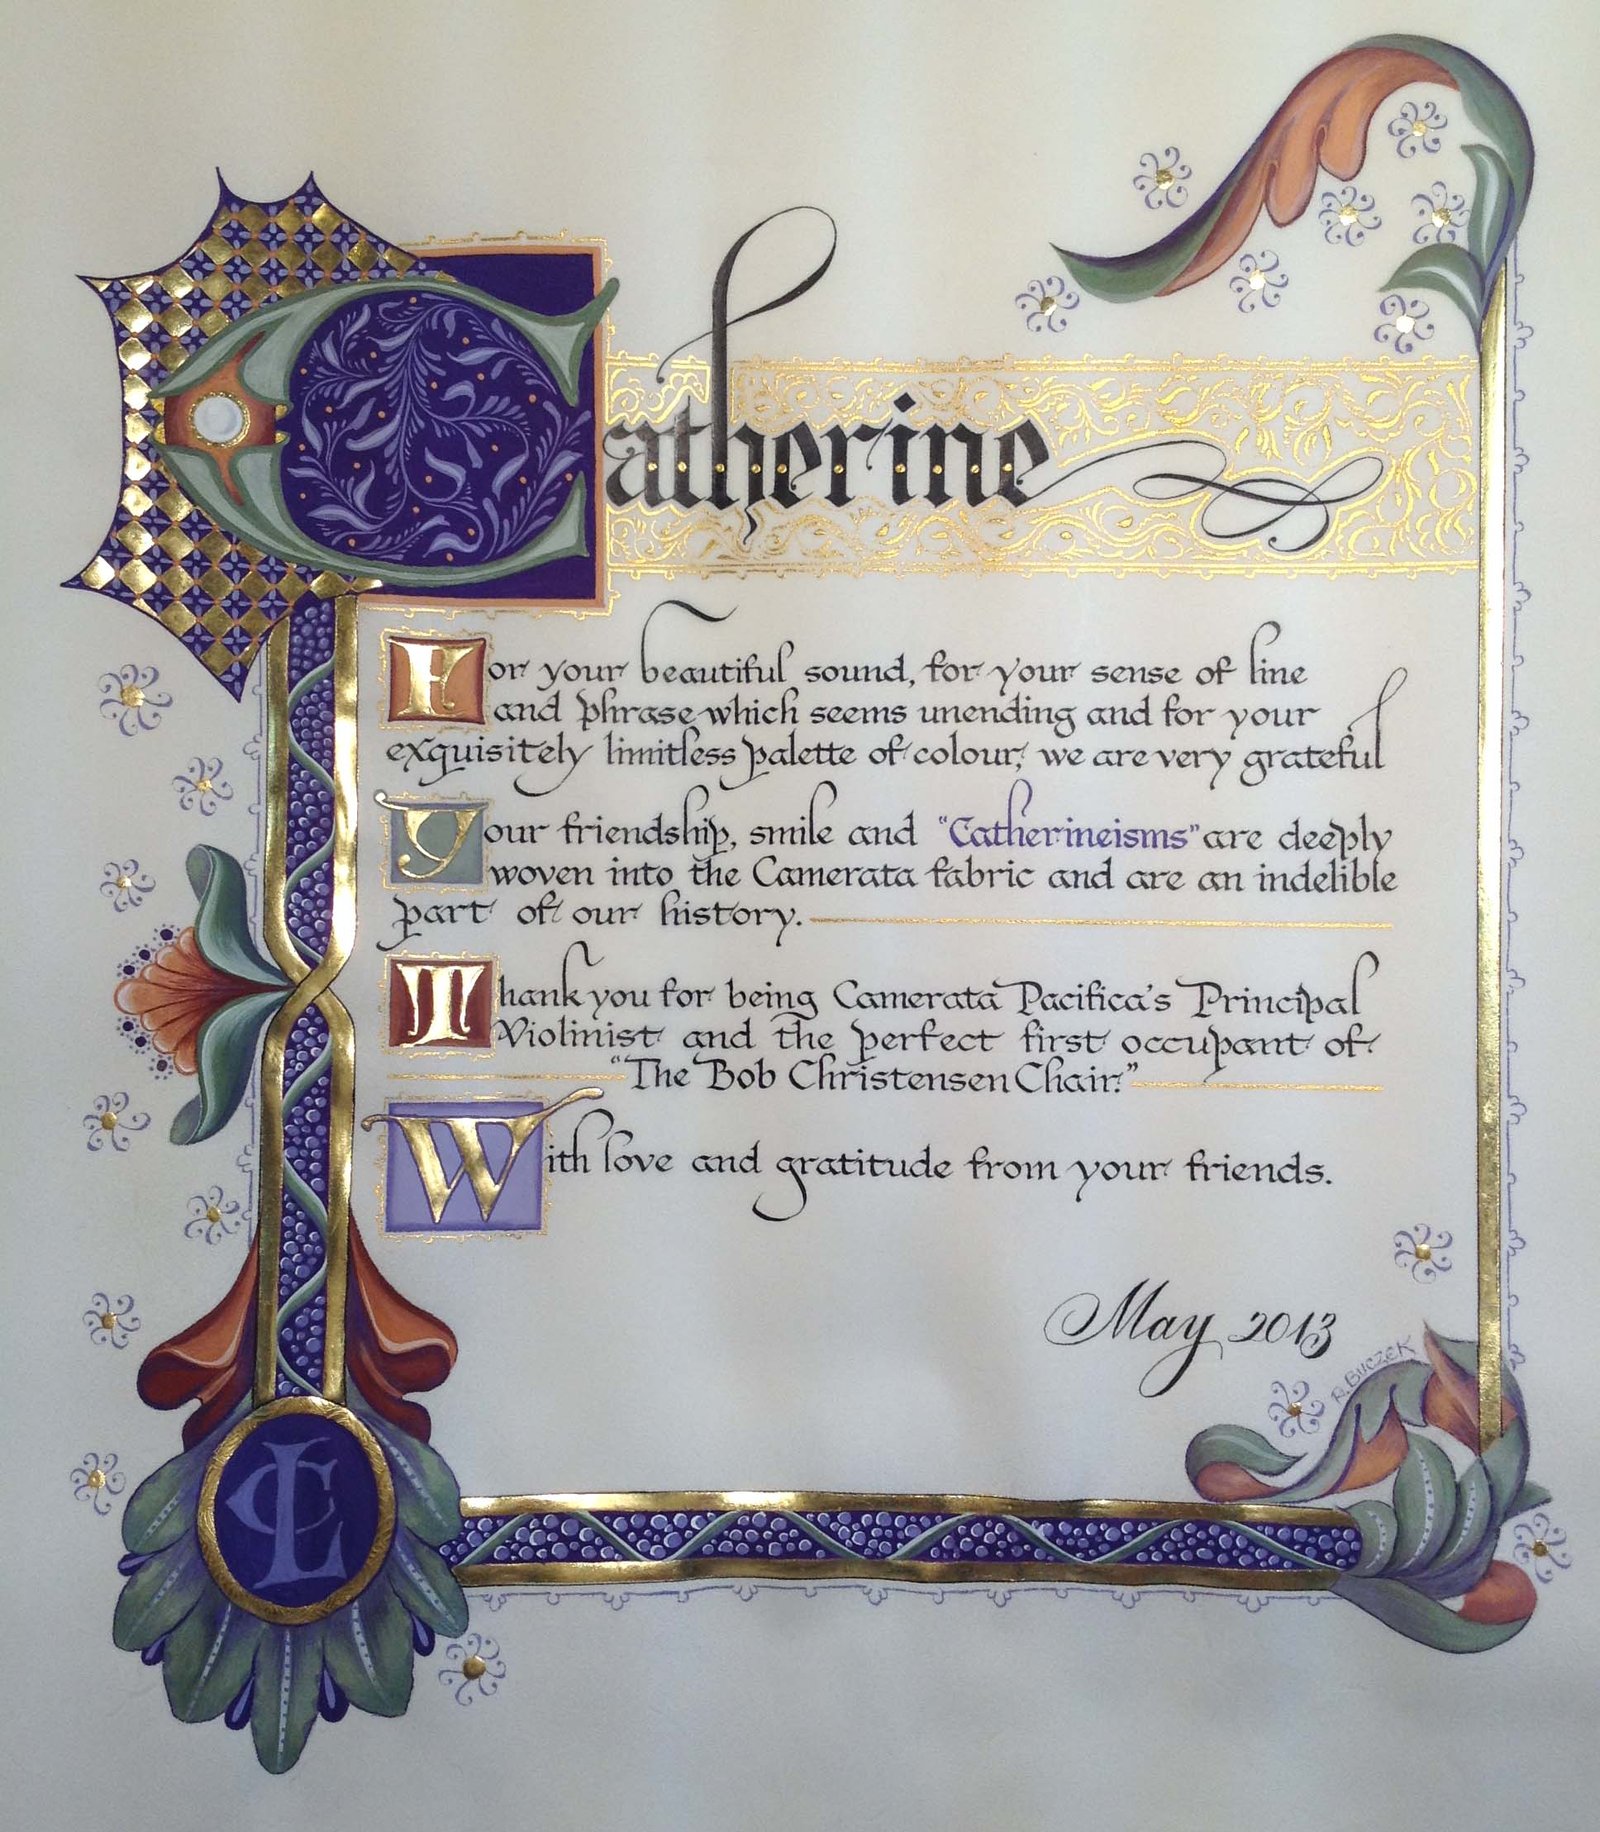 Catherine
For your beautiful sound, for your sense of line
and phrase which seems unending and for your
exquisitely limitless palette of colour, we are very grateful
Your friendship, smile and "Catherineisms" are deeply
woven into the Camerata fabric and are an indelible
part of our history.
Thank you for being Camerata Pacifica's Principal
Violinist and the perfect first occupant of
"The Bob Christensen Chair."
With love and gratitude from your friends.
May 2013
R. Buczek
CL